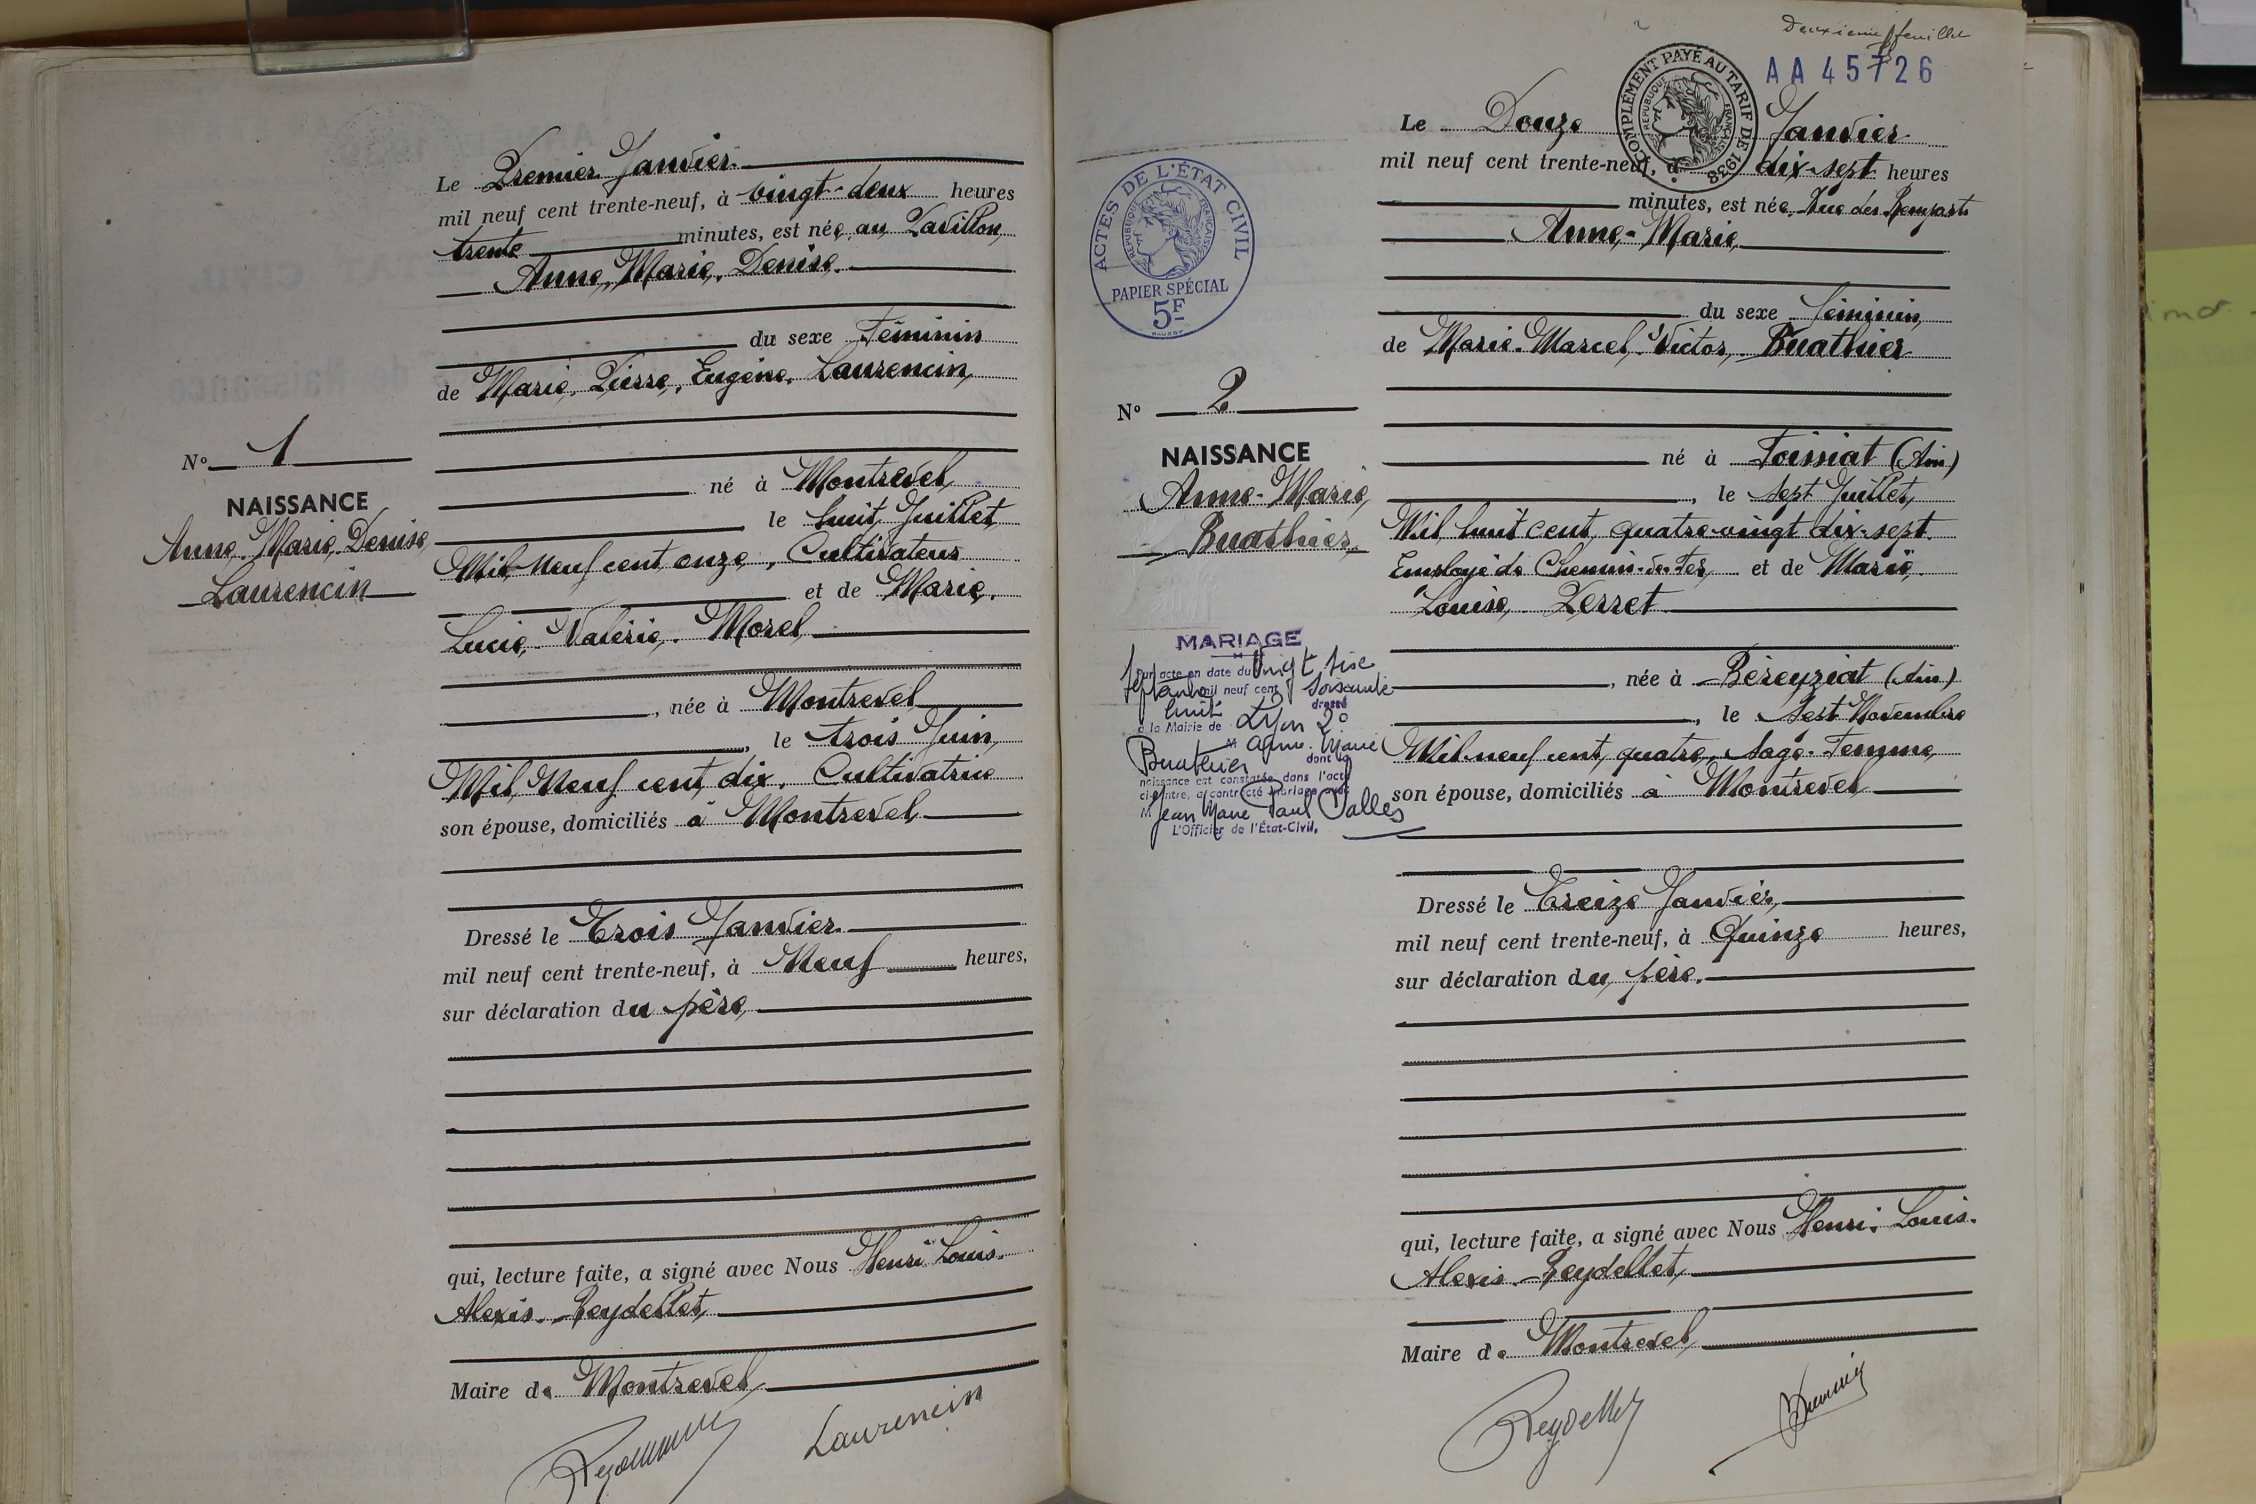 Le Premier Janvier
mil neuf cent trente-neuf, à vingt-deux heures
trente minutes, est née au Pavillon
Anne, Marie, Denise.
du sexe Féminin
de Marie, Pierre, Eugène, Laurencin,
né à Montrevel,
le huit Juillet,
Mil Neuf cent onze, Cultivateur
et de Marie,
Lucie, Valérie, Morel
, née à Montrevel
, le trois Juin,
Mil Neuf cent dix, Cultivatrice
son épouse, domiciliés à Montrevel
N° 1
NAISSANCE
Anne, Marie, Denise
Laurencin
Dressé le Trois Janvier
mil neuf cent trente-neuf, à Neuf heures,
sur déclaration du père,
qui, lecture faite, a signé avec Nous Henri Louis
Alexis Reydellet,
Maire de Montrevel
Laurencin
Deuxième feuillet
AA 45726
COMPLÉMENT PAYÉ AU TARIF DE 1938
RÉPUBLIQUE FRANÇAISE
Le Douze Janvier
mil neuf cent trente-neuf, à dix-sept heures
minutes, est née, Rue des Remparts
Anne-Marie
du sexe féminin,
de Marie-Marcel-Victor, Buathier
né à Foissiat (Ain)
, le Sept Juillet,
Mil huit cent quatre-vingt dix-sept
Employé de Chemin-de-Fer, et de Marie
Louise Perret
, née à Béreyziat (Ain)
, le Sept Novembre
Mil-neuf cent quatre, Sage-Femme,
son épouse, domiciliés à Montrevel
ACTES DE L'ÉTAT CIVIL
RÉPUBLIQUE FRANÇAISE
PAPIER SPÉCIAL
5F
N° 2
NAISSANCE
Anne-Marie,
Buathier
MARIAGE
Par acte en date du vingt six
septembre mil neuf cent soixante
huit dressé
à la Mairie de Lyon 2°
M Anne-Marie
Buathier dont la
naissance est constatée dans l'acte
ci-contre, a contracté mariage avec
M. Jean Marie Paul Dalles
L'Officier de l'État-Civil,
Dressé le Treize Janvier,
mil neuf cent trente-neuf, à Quinze heures,
sur déclaration du père.
qui, lecture faite, a signé avec Nous Henri Louis
Alexis Reydellet,
Maire de Montrevel
Reydellet